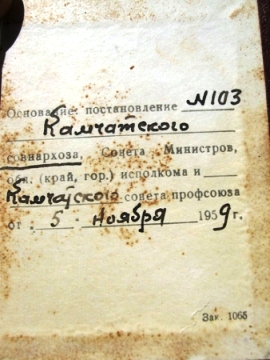 Основание: постановление №103
Камчатского
совнархоза, Совета Министров,
обл. (край, гор.) исполкома и
Камчатского совета профсоюза
от „ 5 " ноября 1959 г.
Зак. 1065